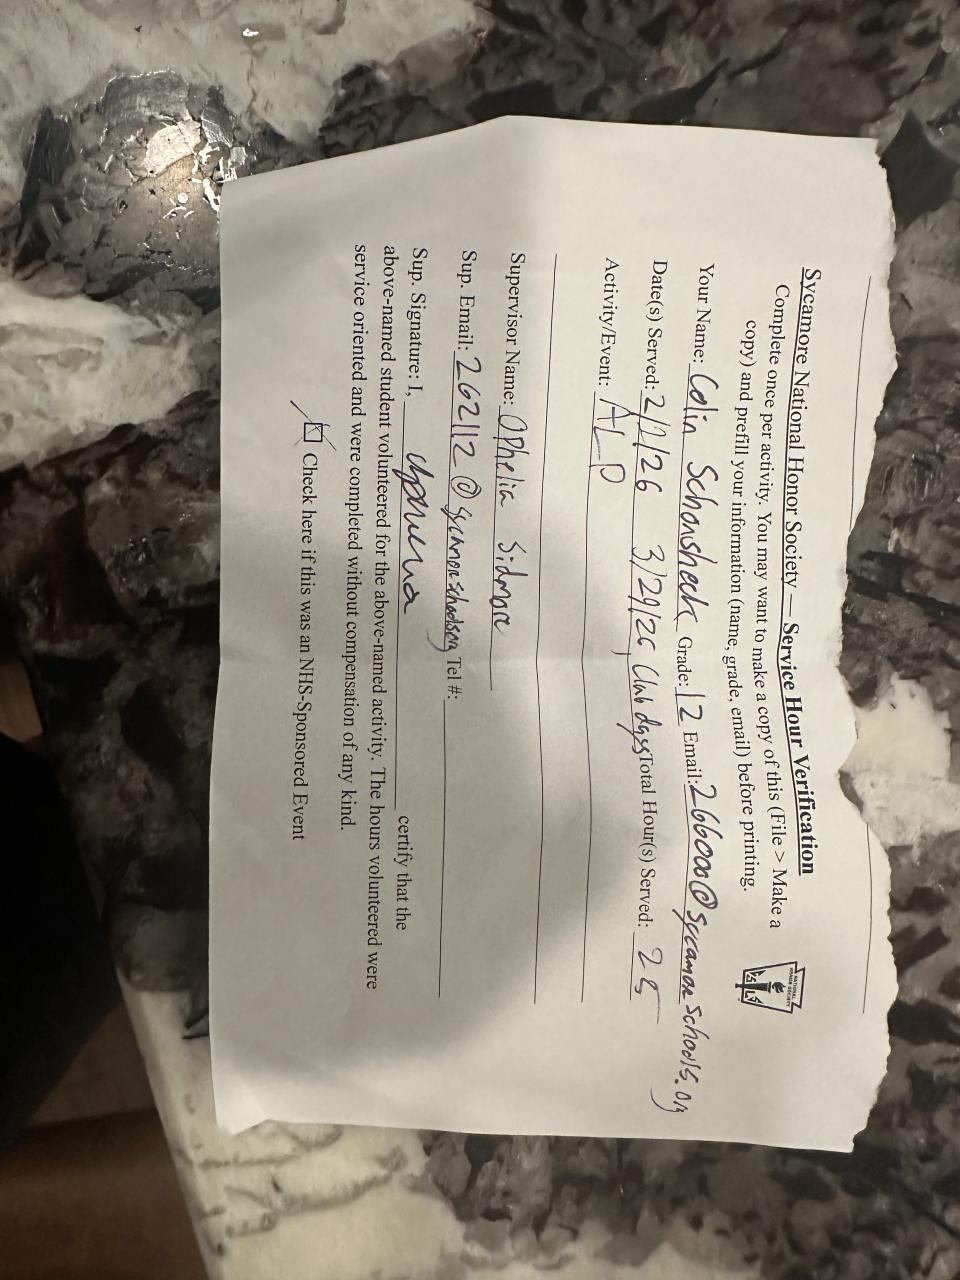 Sycamore National Honor Society — Service Hour Verification
Complete once per activity. You may want to make a copy of this (File > Make a
copy) and prefill your information (name, grade, email) before printing.
NATIONAL
HONOR SOCIETY
Your Name: Colin Schonsheck Grade: 12 Email: 266000@sycamoreschools.org
Date(s) Served: 2/1/26 3/29/26, Club days Total Hour(s) Served: 25
Activity/Event: ALD
Supervisor Name: Ophelia Sidmore
Sup. Email: 262112@ Tel #:
Sup. Signature: I, certify that the
above-named student volunteered for the above-named activity. The hours volunteered were
service oriented and were completed without compensation of any kind.
Check here if this was an NHS-Sponsored Event